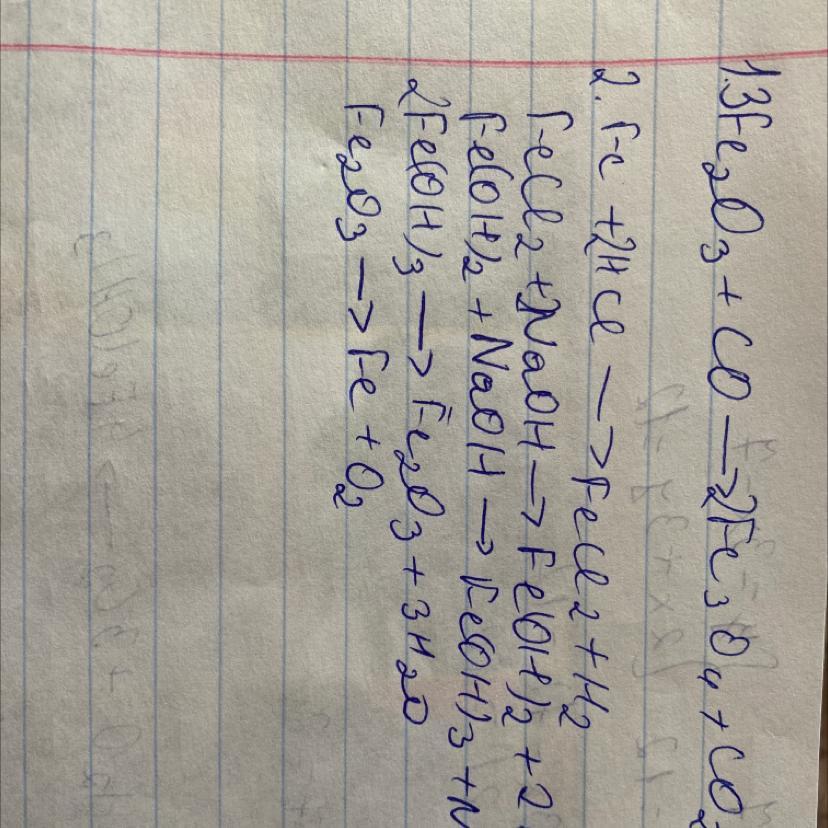 1. 3Fe2O3 + CO → 2Fe3O4 + CO2
2. Fe + 2HCl → FeCl2 + H2
FeCl2 + 2NaOH → Fe(OH)2 + 2
Fe(OH)2 + NaOH → Fe(OH)3 + N
2Fe(OH)3 → Fe2O3 + 3H2O
Fe2O3 → Fe + O2